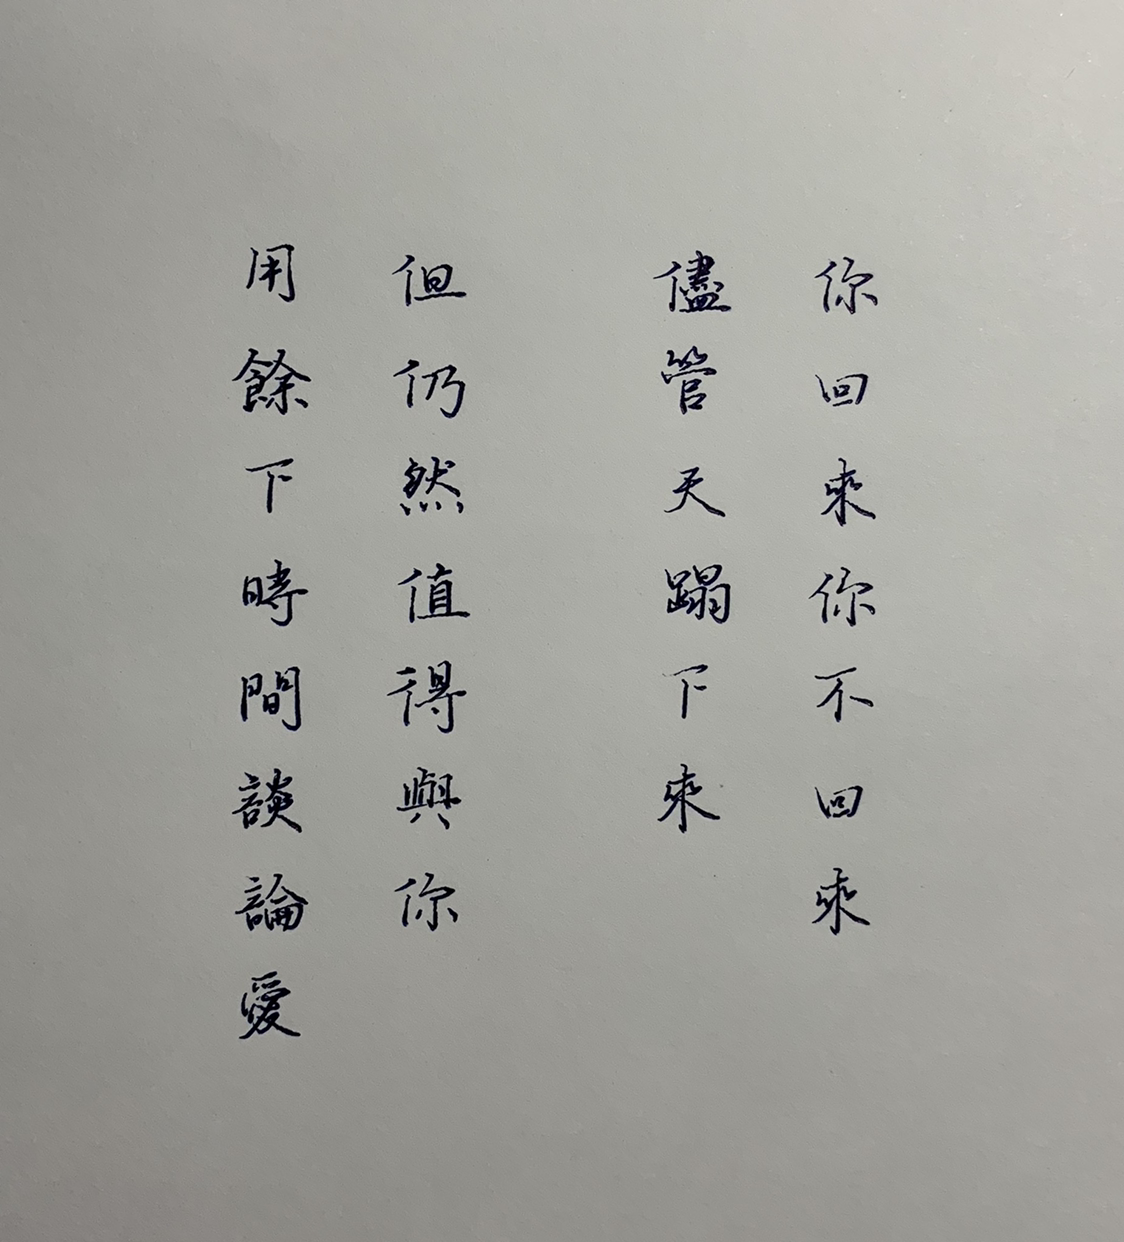 你回來你不回來
儘管天蹋下來
但仍然值得與你
用餘下時間談論愛